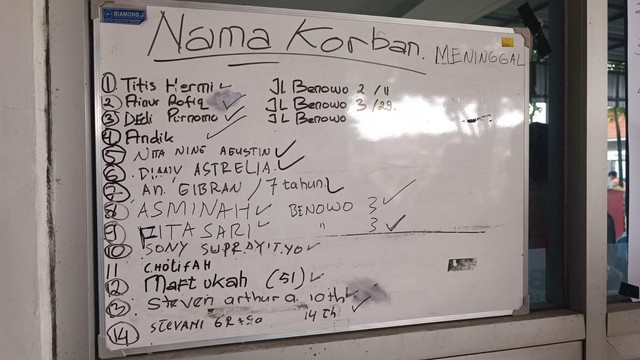 DIAMOND
Nama Korban. MENINGGAL
1 Titis Hermi JL Benowo 2 / 11
2 Ainur Rofiq JL Benowo 3 / 29.
3 Dedi Purnomo JL Benowo
4 Andik
5 NITA NING AGUSTIN
6 ASTRELIA.
7 An. GIBRAN / 7 tahun.
8 ASMINAH BENOWO 3
9 FITASARI " 3
10 SONY SUPRAYITYO
11 CHOLIFAH
12 Maftukah (51)
13. Steven arthur a. 10th
14 STEVANI 14 th